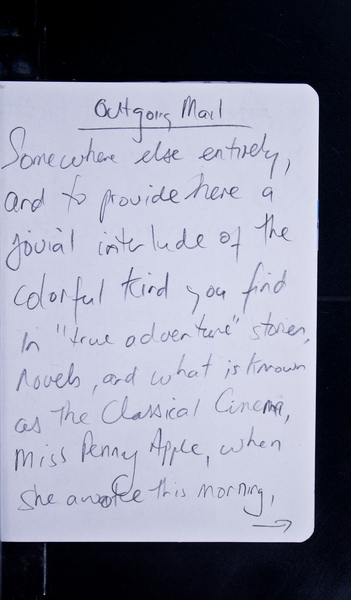 Outgoing Mail
Somewhere else entirely,
and to provide here a
jovial interlude of the
colorful kind you find
in "true adventure" stories,
novels, and what is known
as the Classical Cinema,
Miss Penny Apple, when
she awoke this morning,
→